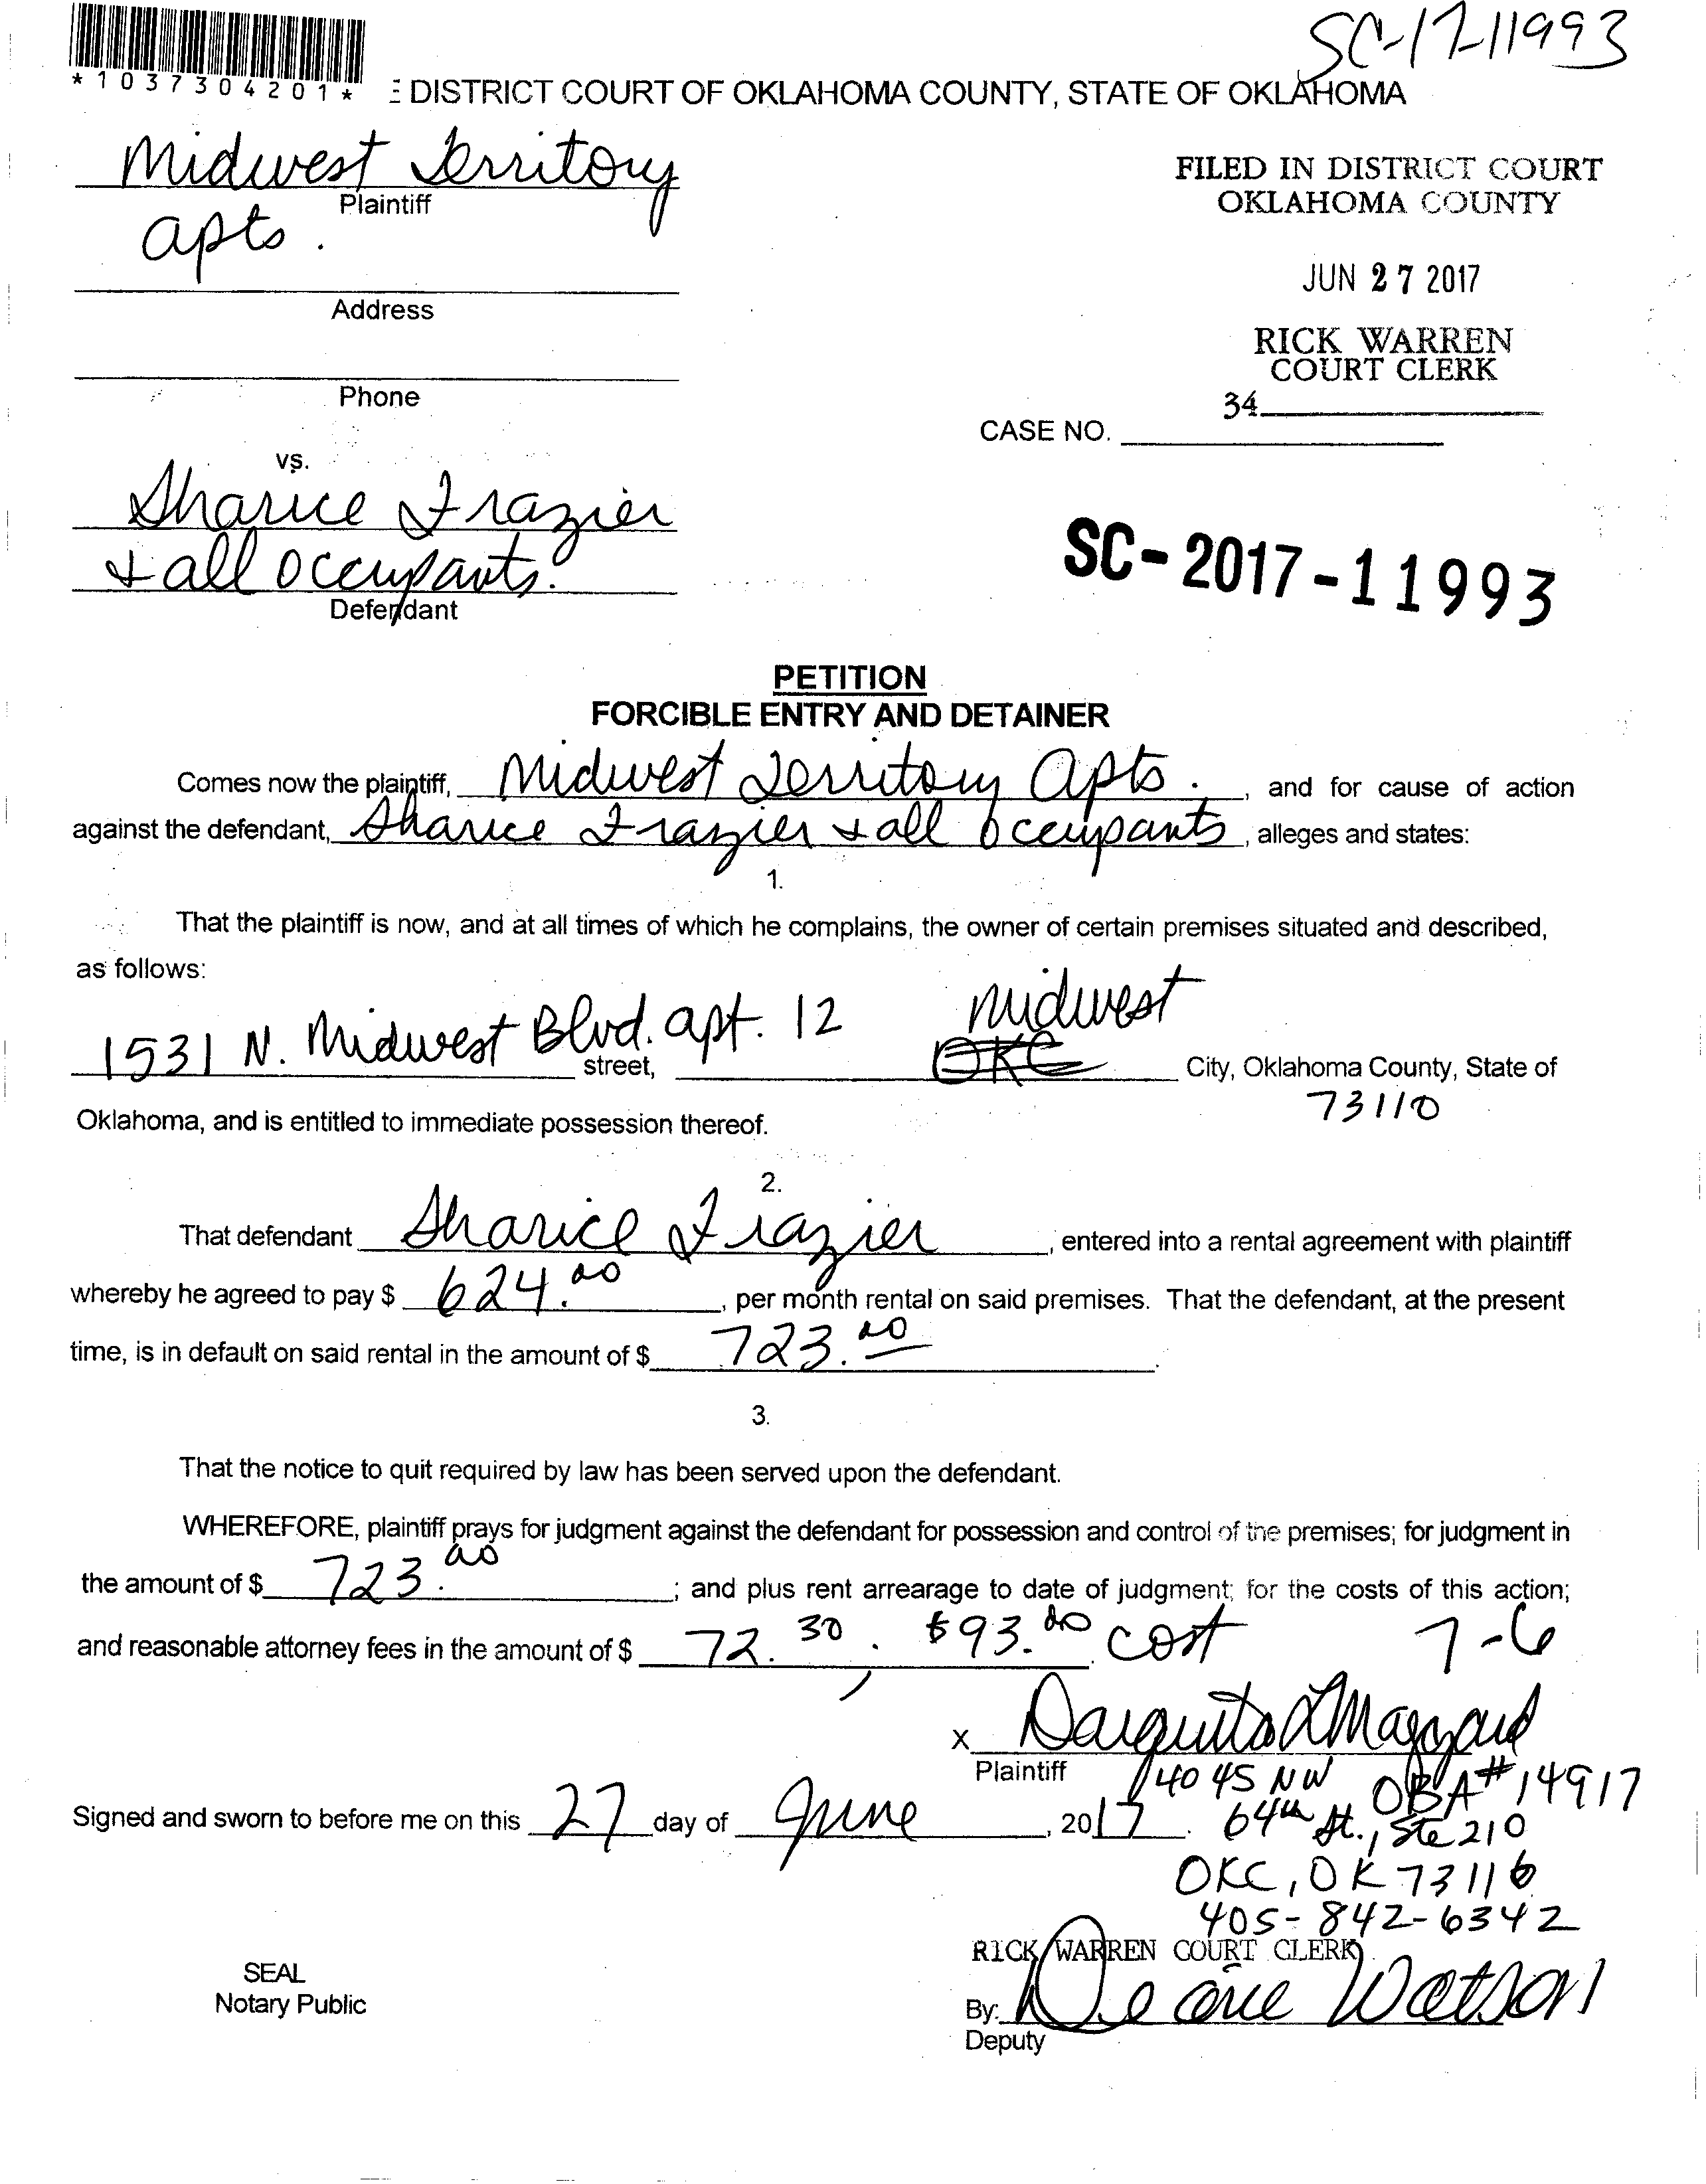 SC-17-11993
*1037304201*
E DISTRICT COURT OF OKLAHOMA COUNTY, STATE OF OKLAHOMA
Midwest Territory
Plaintiff
Apts.
Address
Phone
FILED IN DISTRICT COURT
OKLAHOMA COUNTY
JUN 27 2017
RICK WARREN
COURT CLERK
34
CASE NO.
vs.
Sharice Frazier
& all occupants.
Defendant
SC-2017-11993
PETITION
FORCIBLE ENTRY AND DETAINER
Comes now the plaintiff, Midwest Territory Apts. , and for cause of action
against the defendant, Sharice Frazier & all occupants , alleges and states:
1.
That the plaintiff is now, and at all times of which he complains, the owner of certain premises situated and described,
as follows:
Midwest
1531 N. Midwest Blvd. apt. 12 street, OKC City, Oklahoma County, State of
73110
Oklahoma, and is entitled to immediate possession thereof.
2.
That defendant Sharice Frazier , entered into a rental agreement with plaintiff
whereby he agreed to pay $ 624.00 , per month rental on said premises. That the defendant, at the present
time, is in default on said rental in the amount of $ 723.00 .
3.
That the notice to quit required by law has been served upon the defendant.
WHEREFORE, plaintiff prays for judgment against the defendant for possession and control of the premises; for judgment in
the amount of $ 723.00 ; and plus rent arrearage to date of judgment; for the costs of this action;
and reasonable attorney fees in the amount of $ 72.30 ; $93.00 cost 7-6
X
Plaintiff
4045 NW OBA#14917
Signed and sworn to before me on this 27 day of June , 2017. 64th St., Ste 210
OKC, OK 73116
405-842-6342
RICK WARREN COURT CLERK
SEAL
Notary Public
By: Watson
Deputy